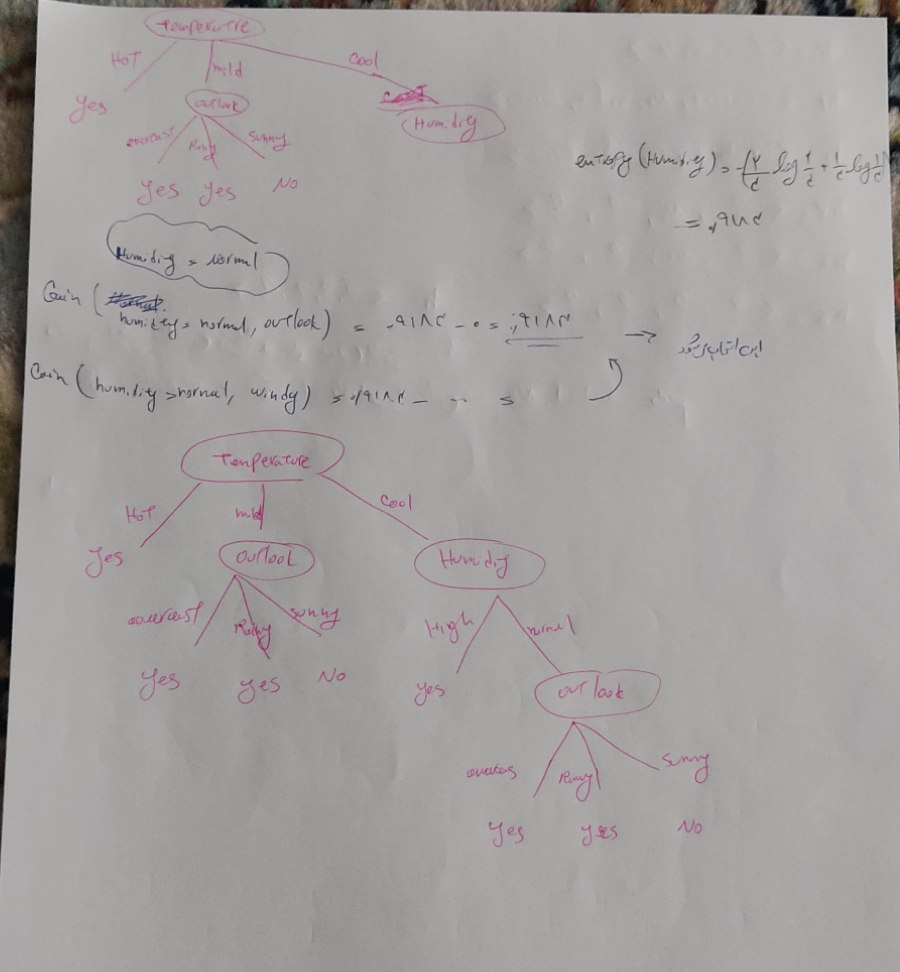 Temperature
Hot mild Cool
Yes outlook Humidity
overcast Rainy Sunny
Yes Yes No
Humidity = normal
Gain (
humidity = normal, outlook) = ۰,۹۱۸۳ - ۰ = ۰,۹۱۸۳ →
Gain (humidity = normal, windy) = ۰,۹۱۸۳ - ... =
Temperature
Hot mild Cool
Yes outlook Humidity
overcast Rainy Sunny High normal
Yes Yes No Yes outlook
overcast Rainy Sunny
Yes Yes No